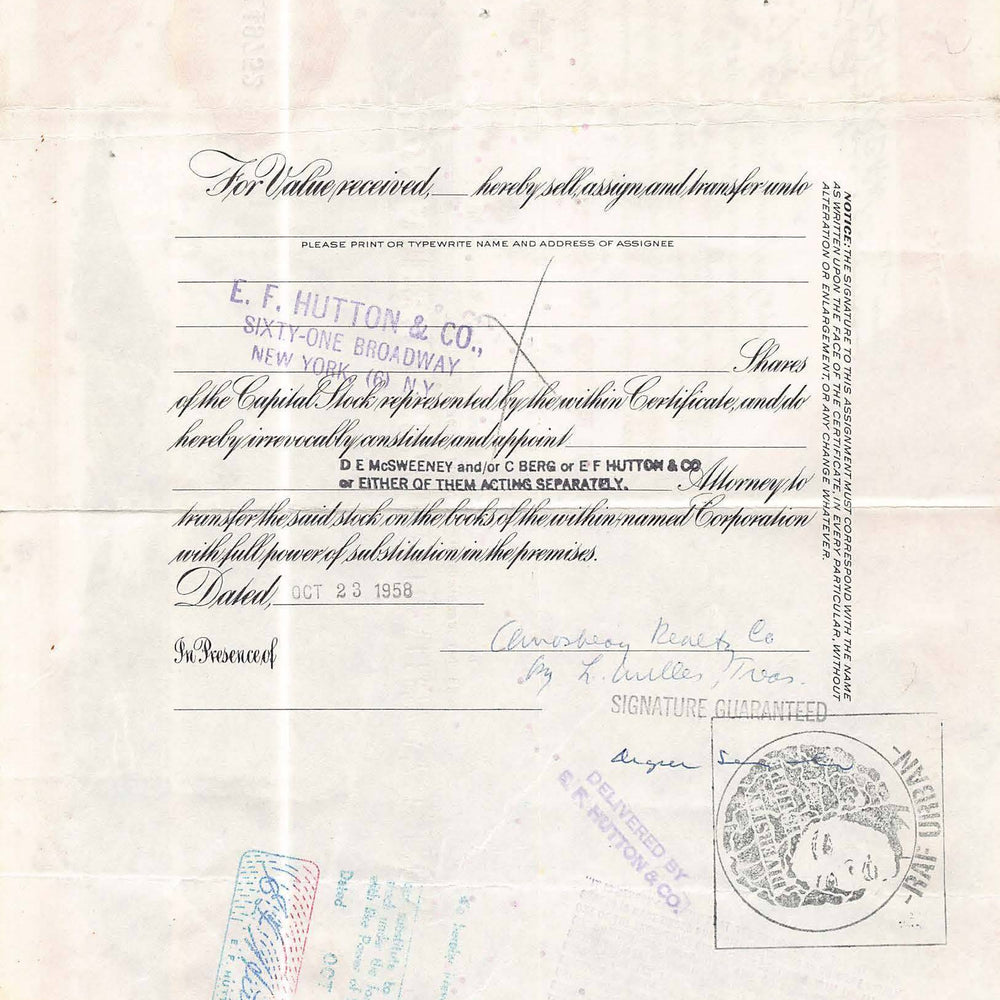 For Value received, ___ hereby sell, assign and transfer unto
PLEASE PRINT OR TYPEWRITE NAME AND ADDRESS OF ASSIGNEE
E. F. HUTTON & CO.,
SIXTY-ONE BROADWAY
NEW YORK (6) N.Y.
Shares
of the Capital Stock represented by the within Certificate, and do
hereby irrevocably constitute and appoint
D E McSWEENEY and/or C BERG or E F HUTTON & CO
or EITHER OF THEM ACTING SEPARATELY.
Attorney to
transfer the said stock on the books of the within-named Corporation
with full power of substitution in the premises.
Dated, OCT 23 1958
In Presence of
Realty Co
By L. Miller, Treas.
SIGNATURE GUARANTEED
DELIVERED BY
E. F. HUTTON & CO.
NOTICE: THE SIGNATURE TO THIS ASSIGNMENT MUST CORRESPOND WITH THE NAME
AS WRITTEN UPON THE FACE OF THE CERTIFICATE, IN EVERY PARTICULAR, WITHOUT
ALTERATION OR ENLARGEMENT, OR ANY CHANGE WHATEVER.
URBAN-
Dated
OCT